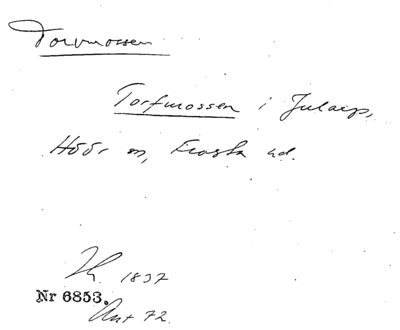 Torvmossen
Torfmossen i Jularp,
Höör sn, Frosta hd.
1837
Nr 6853.
Ant 72.